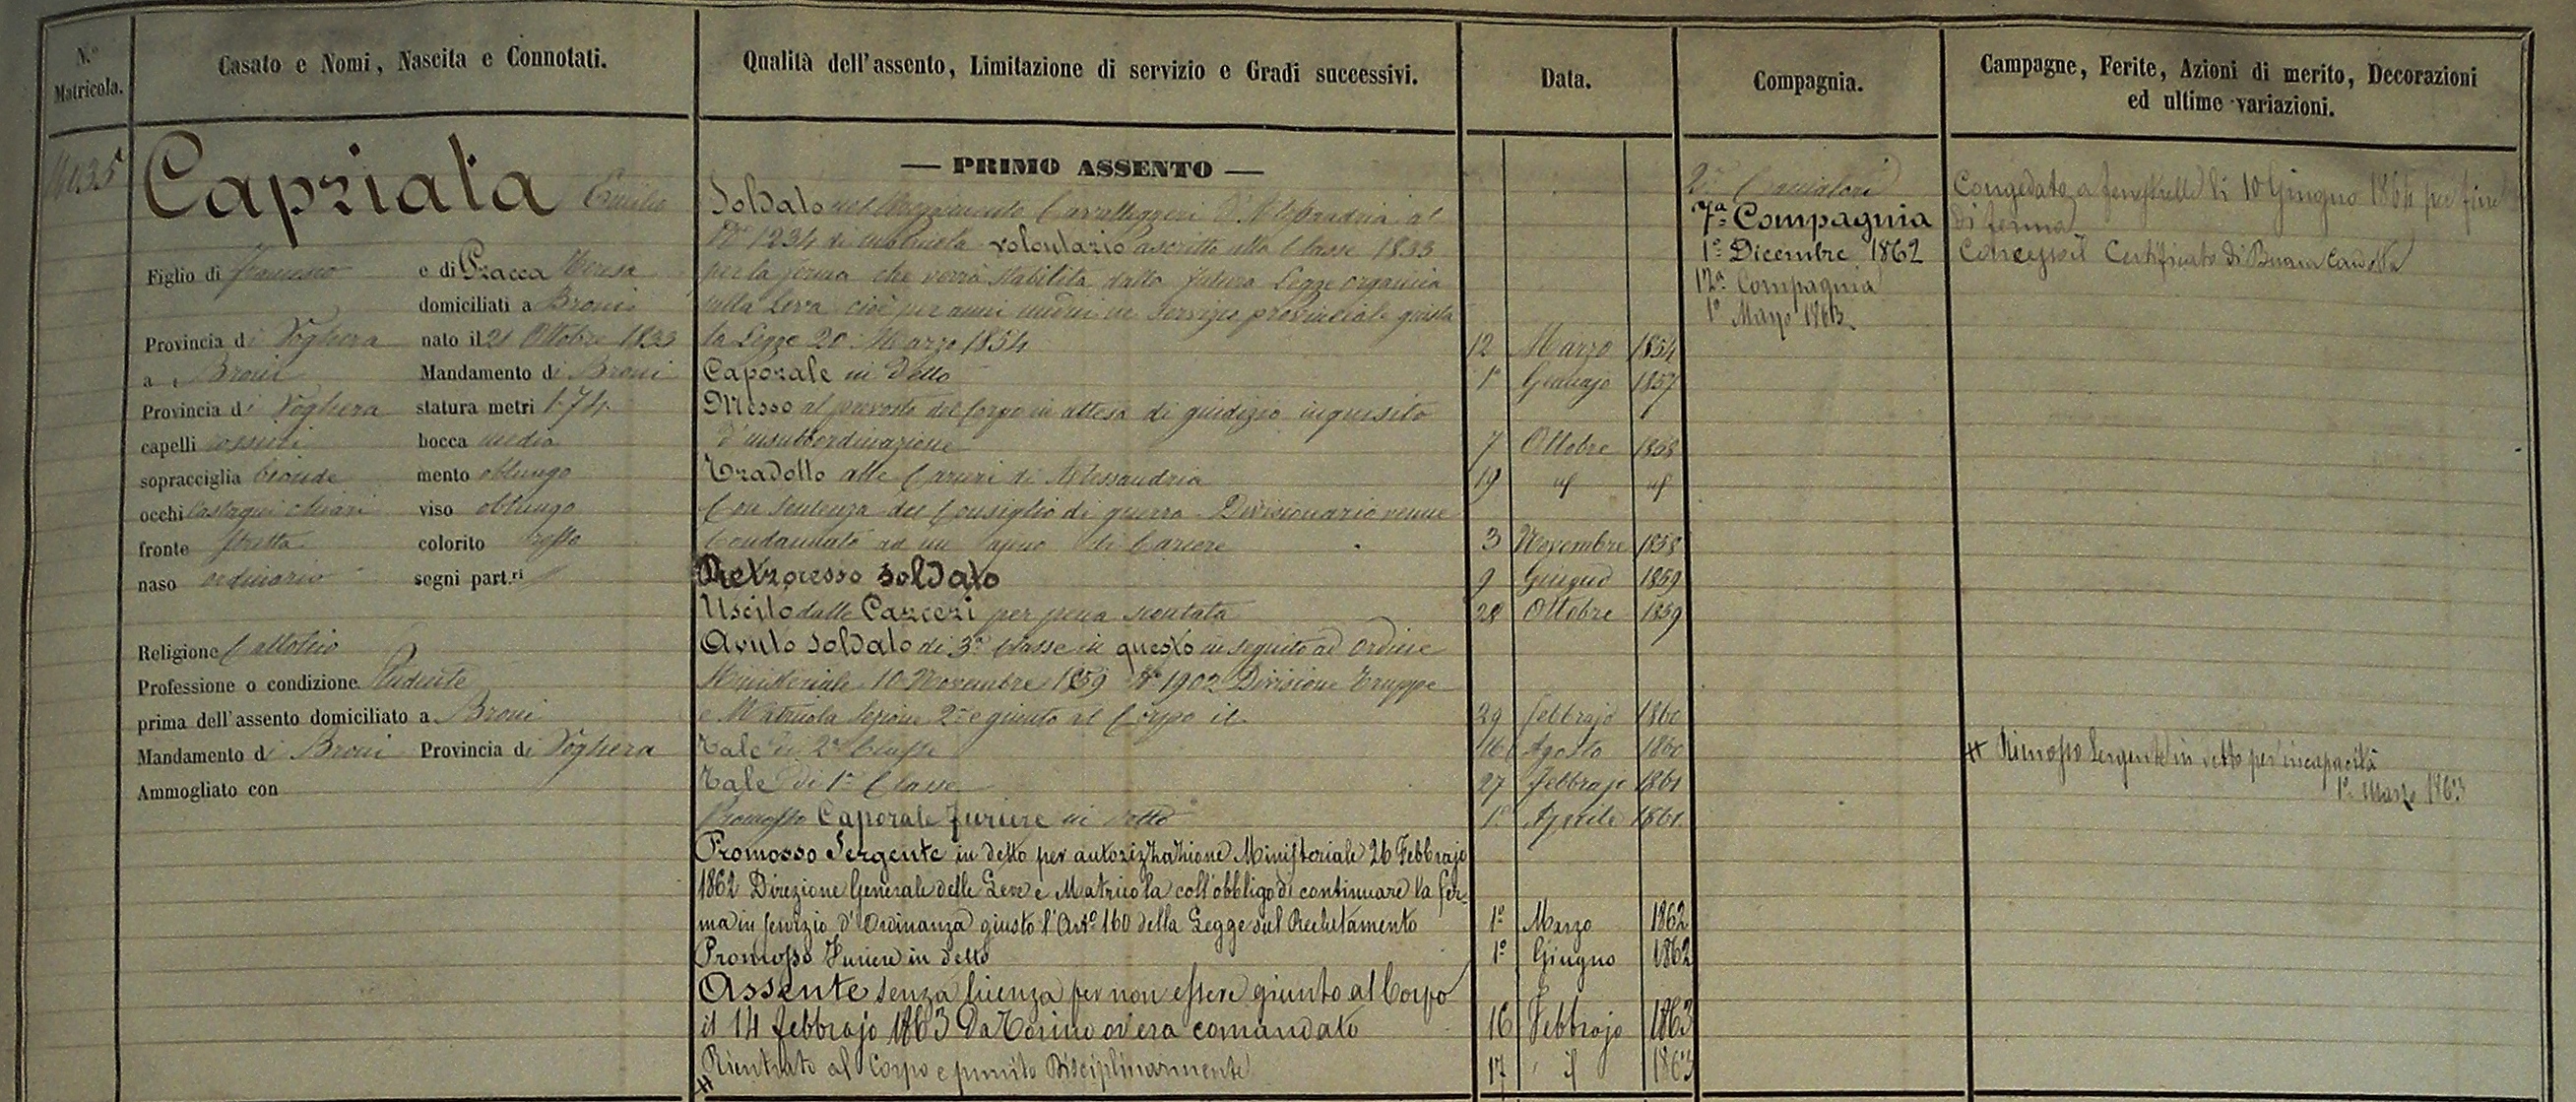 N.º Matricola.
Casato e Nomi, Nascita e Connotati.
Qualità dell'assento, Limitazione di servizio e Gradi successivi.
Data.
Compagnia.
Campagne, Ferite, Azioni di merito, Decorazioni
ed ultime variazioni.
Capriata Emilio
Figlio di Francesco e di Pracca Teresa
domiciliati a Broni
Provincia di Voghera nato il 21 Ottobre 1833
a Broni Mandamento di Broni
Provincia di Voghera statura metri 1.74
capelli rossini bocca media
sopracciglia bionde mento oblungo
occhi castagni chiari viso oblungo
fronte stretta colorito rosso
naso ordinario segni part.ri
Religione Cattolico
Professione o condizione Studente
prima dell'assento domiciliato a Broni
Mandamento di Broni Provincia di Voghera
Ammogliato con
— PRIMO ASSENTO —
Soldato nel Reggimento Cavalleggeri d'Alessandria al
Nº 1234 di matricola volontario ascritto alla Classe 1833
per la ferma che verrà stabilita dalla futura Legge organica
sulla Leva cioè per anni undici in servizio provinciale giusta
la Legge 20 Marzo 1854 12 Marzo 1854
Caporale in detto 1º Gennajo 1857
Messo al prevosto del Corpo in attesa di giudizio inquisito
d'insubbordinazione 7 Ottobre 1858
Tradotto alle Carceri di Alessandria 19 id id
Con sentenza del Consiglio di guerra Divisionario venne
Condannato ad un anno di Carcere 3 Novembre 1858
Retrocesso soldato 9 Giugno 1859
Uscito dalle Carceri per pena scontata 28 Ottobre 1859
Avuto soldato di 3ª Classe in questo in seguito ad ordine
Ministeriale 10 Novembre 1859 Nº 1902 Divisione Truppe
e Matricola Sezione 2ª e giunto al Corpo il 29 febbrajo 1860
Tale di 2ª Classe 16 Agosto 1860
Tale di 1ª Classe 27 Febbrajo 1861
Promosso Caporale Furiere in detto 1º Aprile 1861
Promosso Sergente in detto per autorizzazione Ministeriale 26 Febbrajo
1862 Direzione Generale delle Leve e Matricola coll'obbligo di continuare la fer-
ma in servizio d'Ordinanza giusto l'Artº 160 della Legge sul Reclutamento 1º Marzo 1862
Promosso Furiere in detto 1º Giugno 1862
Assente senza licenza per non essere giunto al Corpo
il 14 febbrajo 1863 da Torino ov'era comandato 16 Febbrajo 1863
Rientrato al Corpo e punito Disciplinarmente 17 id 1863
2ª Cacciatori
7ª Compagnia
1º Dicembre 1862
12ª Compagnia
1º Marzo 1863
Congedato a Fenestrelle li 10 Giugno 1864 per fine
di ferma
Concesso il Certificato di Buona Condotta
Rimosso Sergente in detto per incapacità
1º Marzo 1863